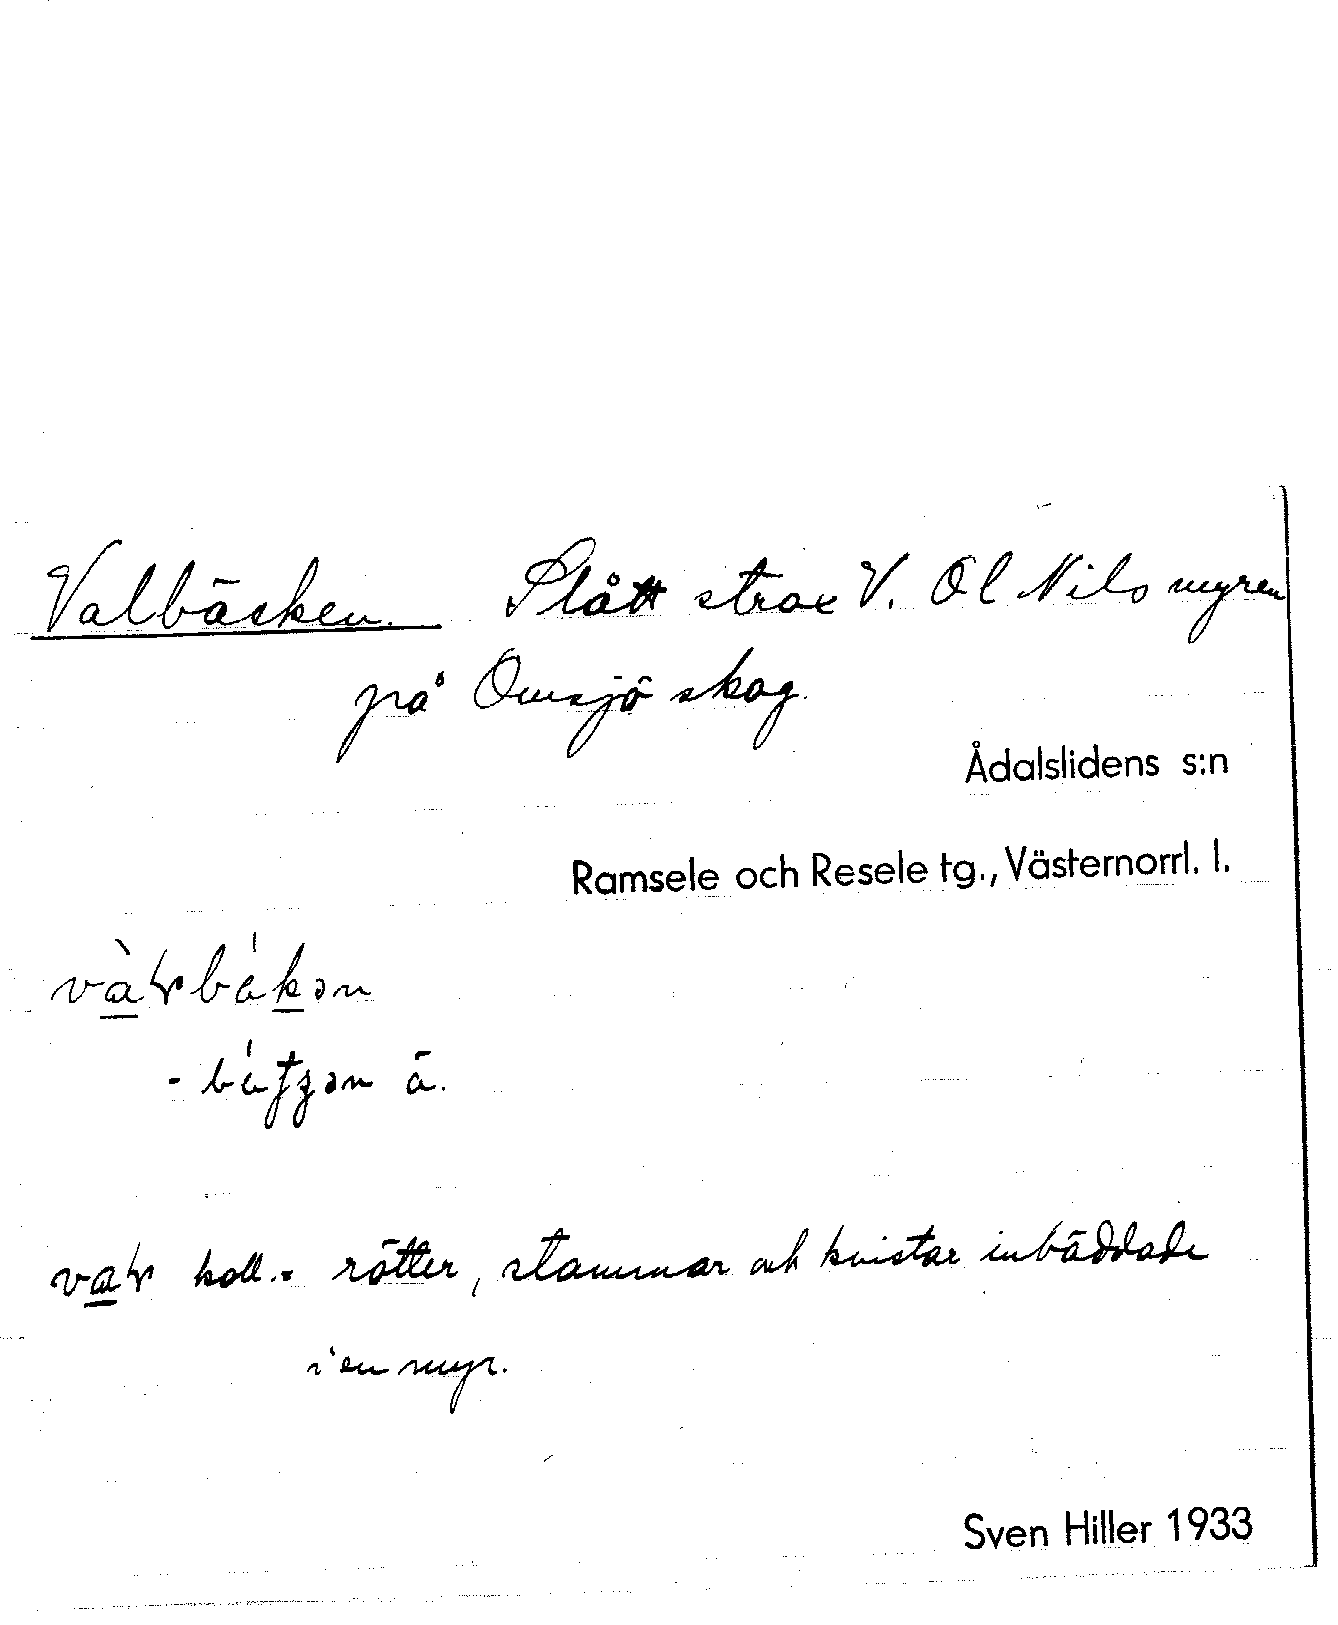 Valbäcken. Slått strax V. Ol Nils myren
på Omsjö skog.
Ådalslidens s:n
Ramsele och Resele tg., Västernorrl. l.
- ä.
koll. = rötter, stammar och kvistar inbäddade
i en myr.
Sven Hiller 1933